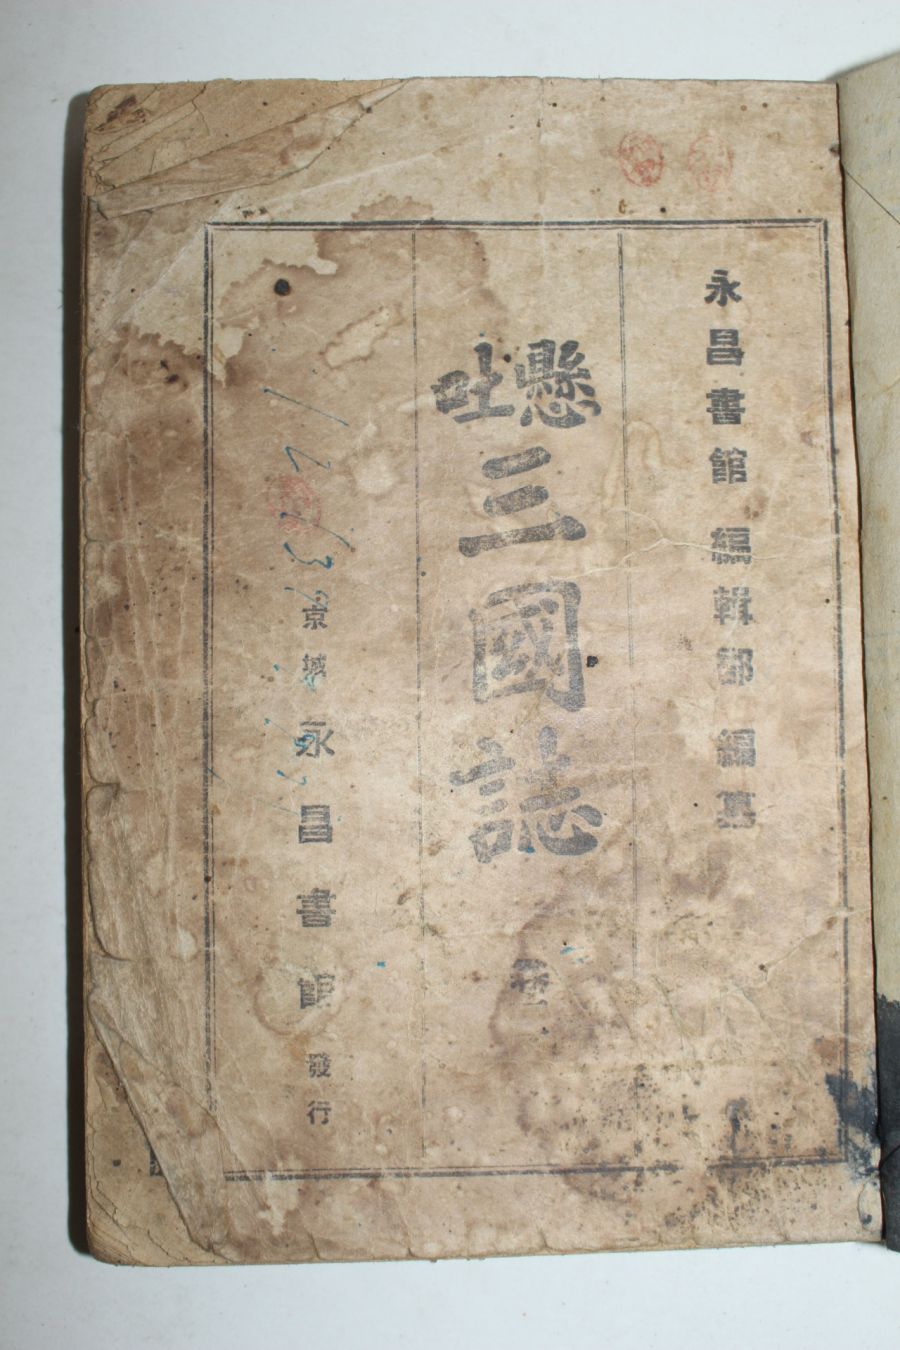 永昌書館 編輯部 編纂
懸吐
三國誌
京城 永昌書館 發行